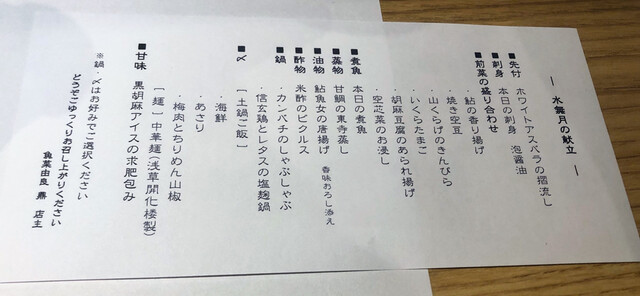 ― 水無月の献立 ―
■先付 ホワイトアスパラの摺流し
■刺身 本日の刺身 泡醤油
■前菜の盛り合わせ
・鮎の香り揚げ
・焼き空豆
・山くらげのきんぴら
・いくらたまご
・胡麻豆腐のあられ揚げ
・空芯菜のお浸し
■煮魚 本日の煮魚
■蒸物 甘鯛の東寺蒸し
■油物 鮎魚女の唐揚げ 香味おろし添え
■酢物 米酢のピクルス
■鍋 ・カンパチのしゃぶしゃぶ
・信玄鶏とレタスの塩麹鍋
■〆 [ 土鍋ご飯 ]
・海鮮
・あさり
・梅肉とちりめん山椒
[ 麺 ] 中華麺(浅草開化楼製)
■甘味 黒胡麻アイスの求肥包み
※鍋・〆はお好みでご選択ください
どうぞごゆっくりお召し上がりください
魚菜由良 店主